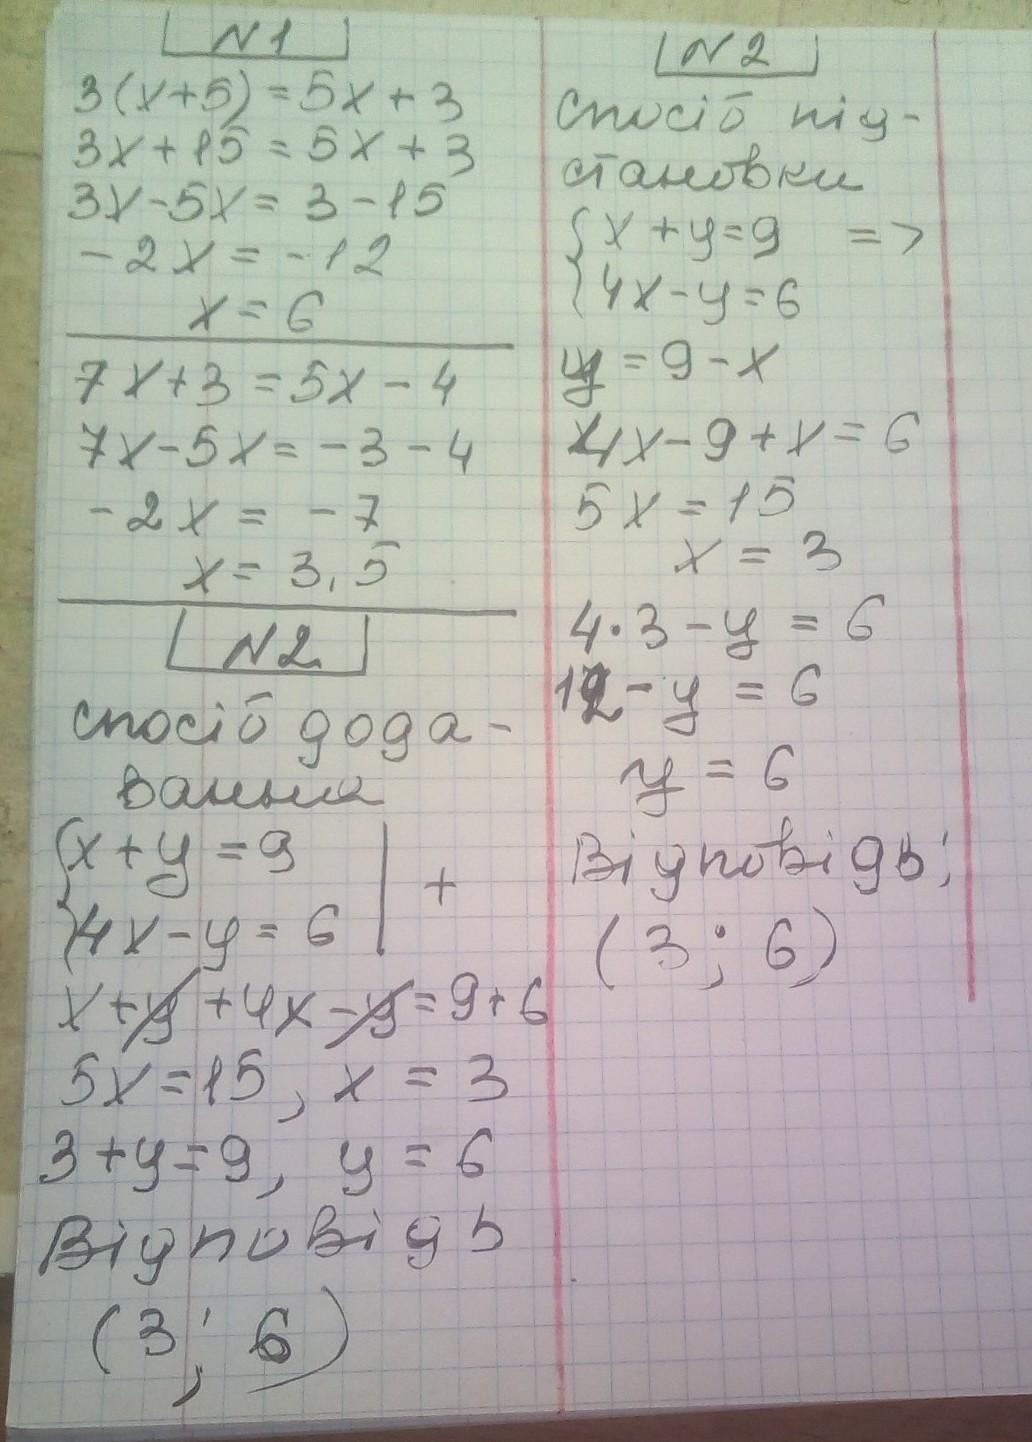 N1
3(x+5)=5x+3
3x+15=5x+3
3x-5x=3-15
-2x=-12
x=6
7x+3=5x-4
7x-5x=-3-4
-2x=-7
x=3,5
N2
спосіб дода-
вання
{x+y=9 | +
{4x-y=6
x+y+4x-y=9+6
5x=15, x=3
3+y=9, y=6
Відповідь
(3; 6)
N2
спосіб під-
становки
{x+y=9 =>
{4x-y=6
y=9-x
4x-9+x=6
5x=15
x=3
4·3-y=6
12-y=6
y=6
Відповідь:
(3; 6)